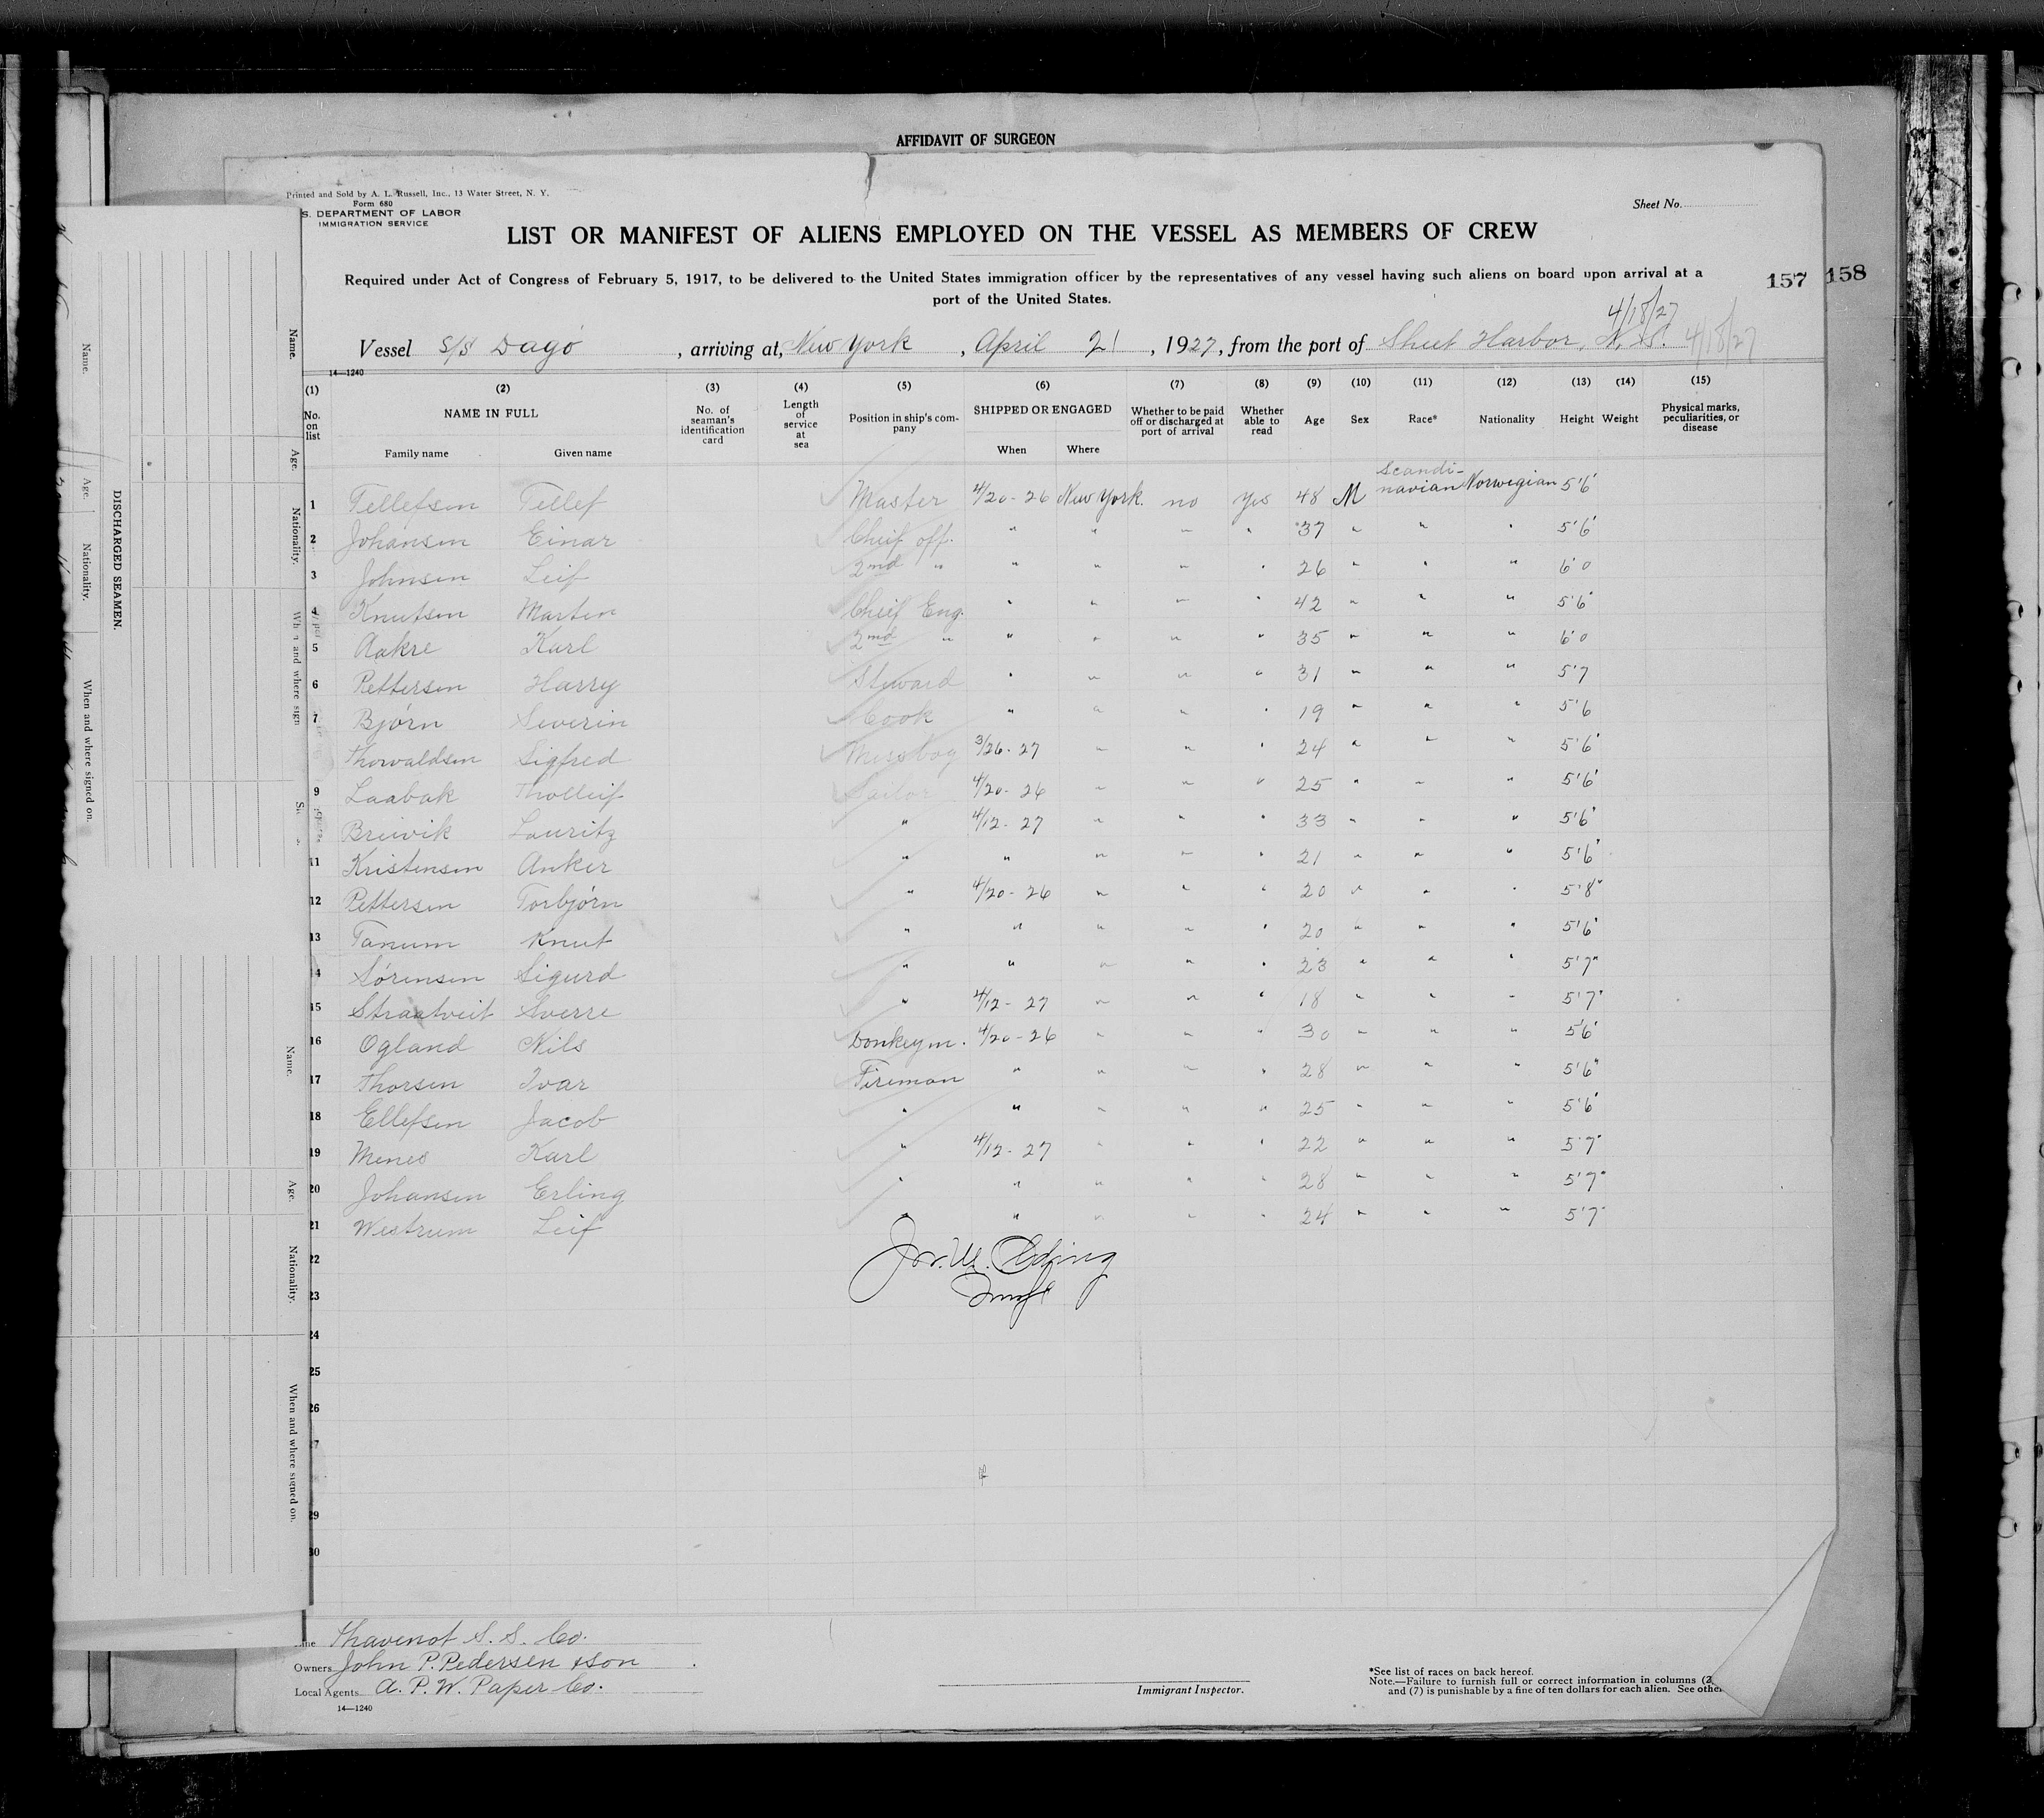 AFFIDAVIT OF SURGEON
Printed and Sold by A. L. Russell, Inc., 13 Water Street, N. Y.
Form 680
S. DEPARTMENT OF LABOR
IMMIGRATION SERVICE
Sheet No.
LIST OR MANIFEST OF ALIENS EMPLOYED ON THE VESSEL AS MEMBERS OF CREW
Required under Act of Congress of February 5, 1917, to be delivered to the United States immigration officer by the representatives of any vessel having such aliens on board upon arrival at a
port of the United States.
157 158
4/18/27
Vessel S/S Dagó, arriving at, New York, April 21, 1927, from the port of Sheet Harbor, N.S. 4/18/27
14—1240
(1) (2) (3) (4) (5) (6) (7) (8) (9) (10) (11) (12) (13) (14) (15)
No. on list NAME IN FULL Family name Given name No. of seaman's identification card Length of service at sea Position in ship's company SHIPPED OR ENGAGED When Where Whether to be paid off or discharged at port of arrival Whether able to read Age Sex Race* Nationality Height Weight Physical marks, peculiarities, or disease
1 Tellefsen Tellef Master 4/20-26 New York. no yes 48 M Scandi-navian Norwegian 5'6"
2 Johansen Einar Cheif off. " " " " 37 " " " 5'6"
3 Johnsen Leif 2nd " " " " " 26 " " " 6'0
4 Knutsen Marten Cheif Eng. " " " " 42 " " " 5'6"
5 Aakre Karl 2nd " " " " " 35 " " " 6'0
6 Pettersen Harry Steward " " " " 31 " " " 5'7
7 Bjørn Severin Cook " " " " 19 " " " 5'6
Thorvaldsen Sigfred Messboy 3/26-27 " " " 24 " " " 5'6"
9 Laabak Tholleif Sailor 4/20-26 " " " 25 " " " 5'6"
Breivik Lauritz " 4/12-27 " " " 33 " " " 5'6"
11 Kristensen Anker " " " " " 21 " " " 5'6"
12 Pettersen Torbjørn " 4/20-26 " " " 20 " " " 5'8"
13 Tanum Knut " " " " " 20 " " " 5'6"
14 Sørensen Sigurd " " " " " 23 " " " 5'7"
15 Straatveit Sverre " 4/12-27 " " " 18 " " " 5'7"
16 Ogland Nils Donkeym. 4/20-26 " " " 30 " " " 5'6"
17 Thorsen Ivar Fireman " " " " 28 " " " 5'6"
18 Ellefsen Jacob " " " " " 25 " " " 5'6"
19 Menes Karl " 4/12-27 " " " 22 " " " 5'7"
20 Johansen Erling " " " " " 28 " " " 5'7"
21 Westrum Leif " " " " " 24 " " " 5'7"
22
23
24
25
26
27
29
30
Thavenot S. S. Co.
Owners John P. Pedersen & son
Local Agents A. P. W. Paper Co.
14—1240
Immigrant Inspector.
*See list of races on back hereof.
Note.—Failure to furnish full or correct information in columns (2
and (7) is punishable by a fine of ten dollars for each alien. See other
DISCHARGED SEAMEN.
Name. Age. Nationality. When and where signed on.
Name. Age. Nationality. When and where sign
Name. Age. Nationality. When and where signed on.